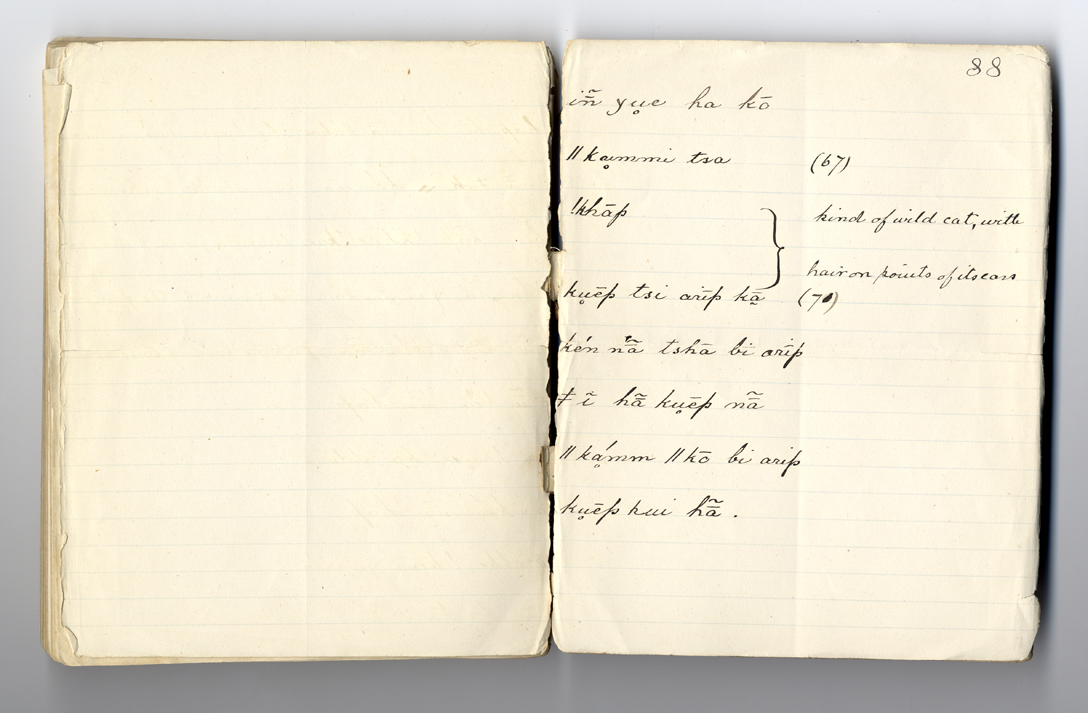 88
iñ̃ yu̥e ha kō
ǁkḁmmi tsa (67)
!khāp kind of wild cat, with
hair on points of its ears
ku̥ēp tsi arīp kã (70)
kén nã̄ tshā bi arīp
ǂĩ hã̄ ku̥ēp nã̄
ǁkḁ́mm ǁkō bi arip
ku̥ēp kui hã̄.